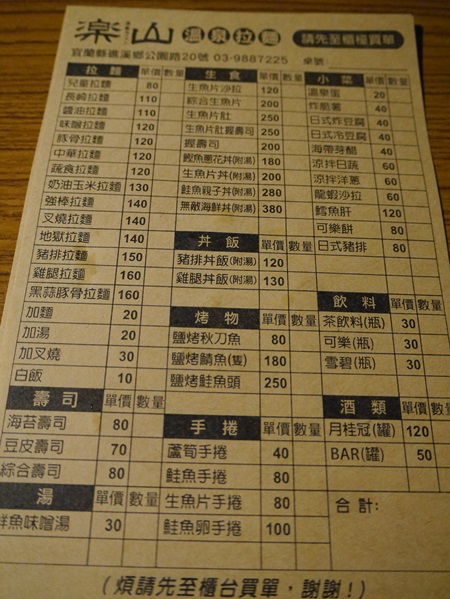 楽山 溫泉拉麵 請先至櫃檯買單
宜蘭縣礁溪鄉公園路20號 03-9887225 桌號
拉麵 單價 數量
兒童拉麵 80
長崎拉麵 110
醬油拉麵 110
味噌拉麵 120
豚骨拉麵 120
中華拉麵 120
蔬食拉麵 120
奶油玉米拉麵 130
強棒拉麵 140
叉燒拉麵 140
地獄拉麵 140
豬排拉麵 150
雞腿拉麵 160
黑蒜豚骨拉麵 160
加麵 20
加湯 20
加叉燒 30
白飯 10
壽司 單價 數量
海苔壽司 80
豆皮壽司 70
綜合壽司 80
湯 單價 數量
鮮魚味噌湯 30
生食 單價 數量
生魚片沙拉 120
綜合生魚片 200
生魚片肚 250
生魚片肚握壽司 250
握壽司 200
鰹魚蔥花丼(附湯) 180
生魚片丼(附湯) 200
鮭魚親子丼(附湯) 280
無敵海鮮丼(附湯) 380
丼飯 單價 數量
豬排丼飯(附湯) 120
雞腿丼飯(附湯) 130
烤物 單價 數量
鹽烤秋刀魚 80
鹽烤鯖魚(隻) 180
鹽烤鮭魚頭 250
手捲 單價 數量
蘆筍手捲 40
鮭魚手捲 80
生魚片手捲 80
鮭魚卵手捲 100
小菜 單價 數量
溫泉蛋 20
炸脆薯 40
日式炸豆腐 40
日式冷豆腐 40
海帶芽醋 40
涼拌日蔬 60
涼拌洋蔥 60
龍蝦沙拉 60
鱈魚肝 120
可樂餅 80
日式豬排 80
飲料 單價 數量
茶飲料(瓶) 30
可樂(瓶) 30
雪碧(瓶) 30
酒類 單價 數量
月桂冠(罐) 120
BAR(罐) 50
合計:
(煩請先至櫃台買單,謝謝!)